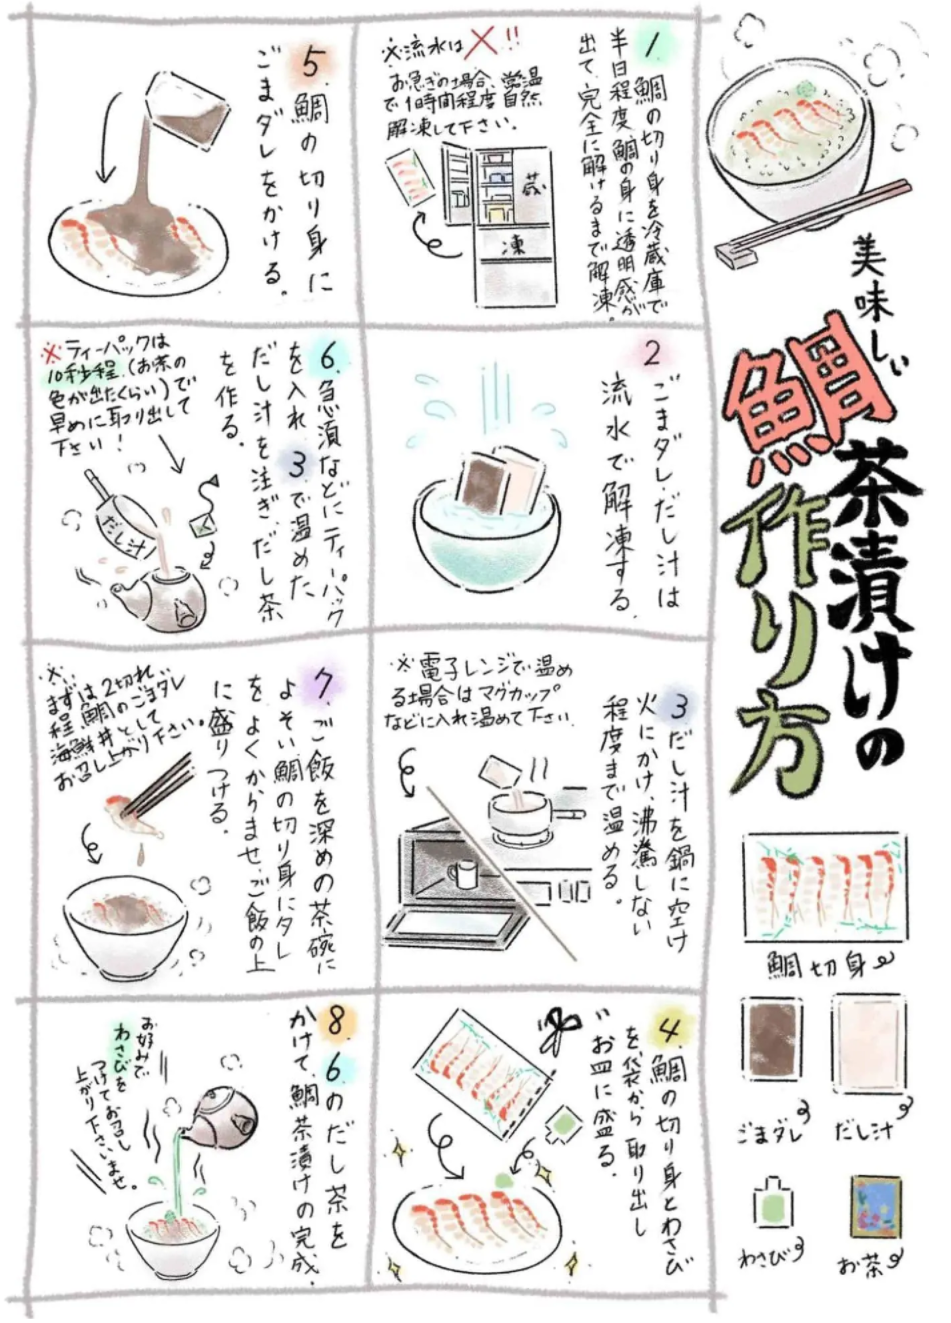 美味しい
鯛茶漬けの
作り方
鯛切身
ごまダレ
だし汁
わさび
お茶
1.鯛の切り身を冷蔵庫で
半日程度鯛の身に透明感が
出て、完全に解けるまで解凍。
※流水は×!!
お急ぎの場合、常温
で1時間程度自然
解凍して下さい.
蔵
凍
2 ごまダレ、だし汁は
流水で解凍する.
3 だし汁を鍋に空け
火にかけ、沸騰しない
程度まで温める。
※電子レンジで温め
る場合はマグカップ
などに入れ温めて下さい.
4.鯛の切り身とわさび
を袋から取り出し
お皿に盛る.
5.鯛の切り身に
ごまダレをかける.
6.急須などにティーパック
を入れ 3で温めた
だし汁を注ぎ、だし茶
を作る.
※ティーパックは
10秒程.(お茶の
色が出たくらい)で
早めに取り出して
下さい!
だし汁
7.ご飯を深めの茶碗に
よそい鯛の切り身にタレ
をよくからませ、ご飯の上
に盛りつける.
※
まずは2切れ
程、鯛のごまダレ
海鮮丼として
お召し上がり下さい。
8.6のだし茶を
かけて、鯛茶漬けの完成.
お好みで
わさびを
つけてお召し
上がり下さいませ.